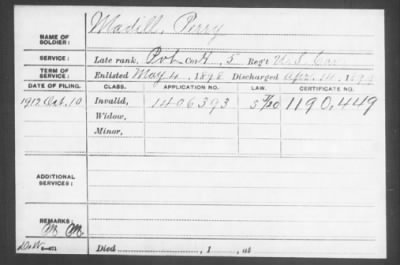 NAME OF SOLDIER: Madill, Perry
SERVICE: Late rank, Pvt Co. H, 5 Reg't U.S. Cav
TERM OF SERVICE: Enlisted May 4, 1898 Discharged Apr. 14, 1899
DATE OF FILING. CLASS. APPLICATION NO. LAW. CERTIFICATE NO.
1912 Oct. 10 Invalid, 1406393 1190,449
Widow,
Minor,
ADDITIONAL SERVICES:
REMARKS:
Died , 1 , at